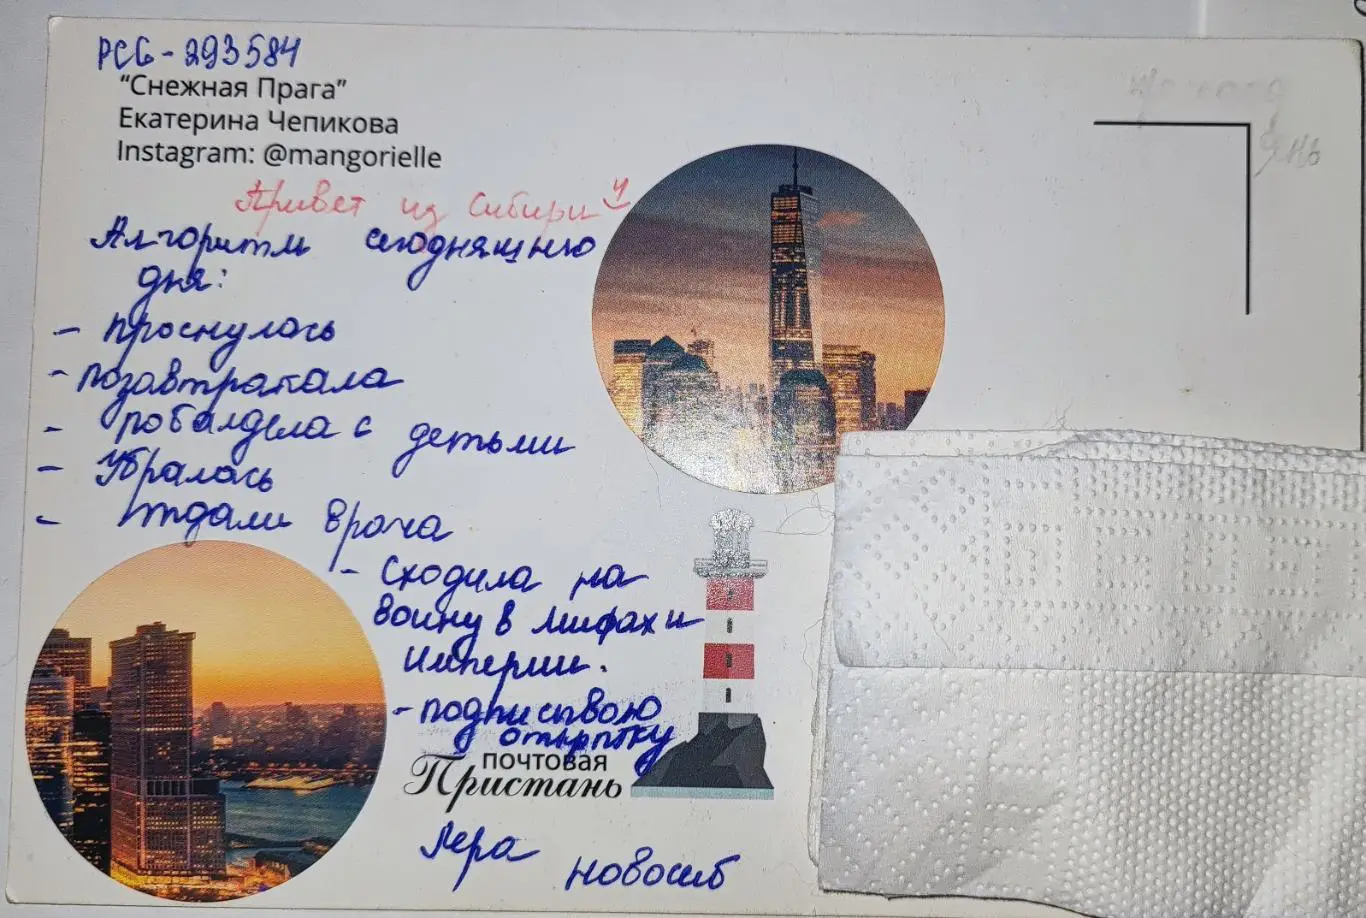 РСG-293584
"Снежная Прага"
Екатерина Чепикова
Instagram: @mangorielle
Привет из Сибири
Алгоритм сегодняшнего
дня:
- проснулась
- позавтракала
- побалдела с детьми
- Убралась
- Ждали врача
- Сходила на
войну в мифах и
империи.
- подписываю
открытку
почтовая
Пристань
Лера
Новосиб